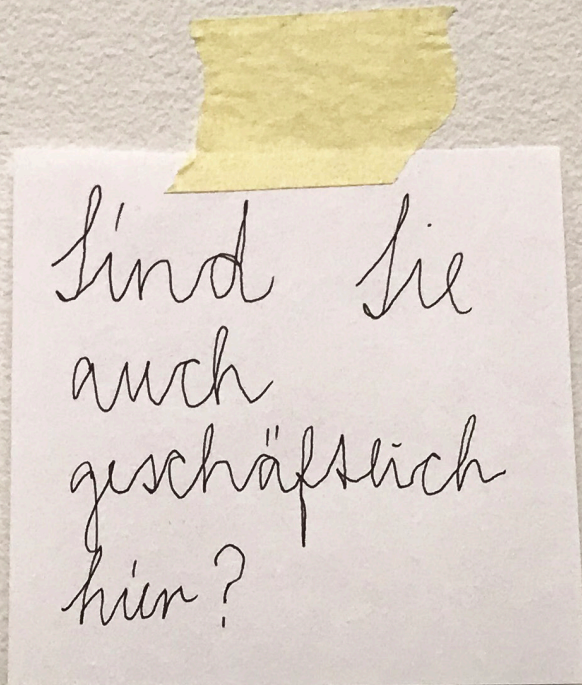 Sind Sie
auch
geschäftlich
hier?